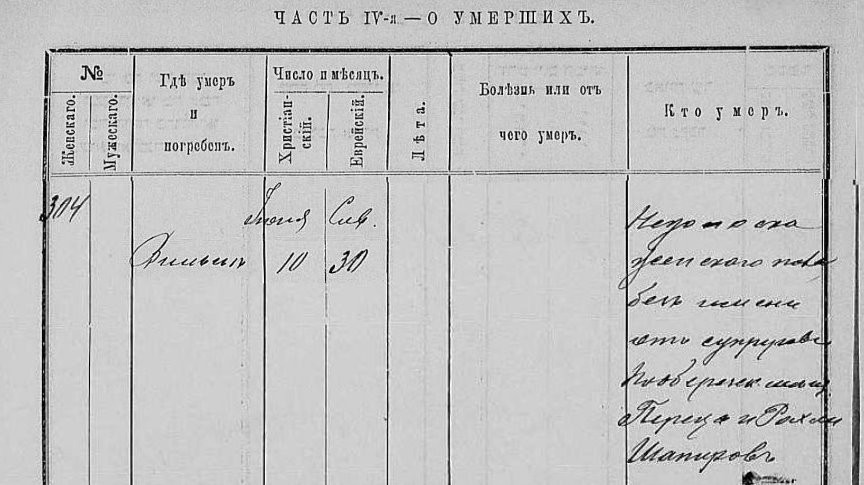 ЧАСТЬ IV-я — О УМЕРШИХЪ.
№
Женскаго.
Мужескаго.
Гдѣ умеръ
и
погребенъ.
Число и мѣсяцъ.
Христіан-
скій.
Еврейскій.
Лѣта.
Болѣзнь или отъ
чего умеръ.
Кто умеръ.
304
Іюня Сив.
Вильнѣ 10 30
Недоноска
женскаго пола
безъ имени
отъ супруговъ
Переца и Рохли
Шапировъ